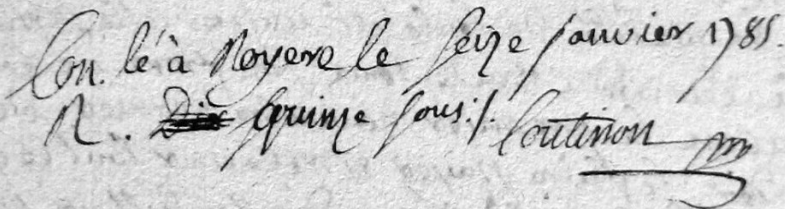 Con. lé à Royere le seize janvier 1785.
R. Dix quinze sous :/. Coutisson